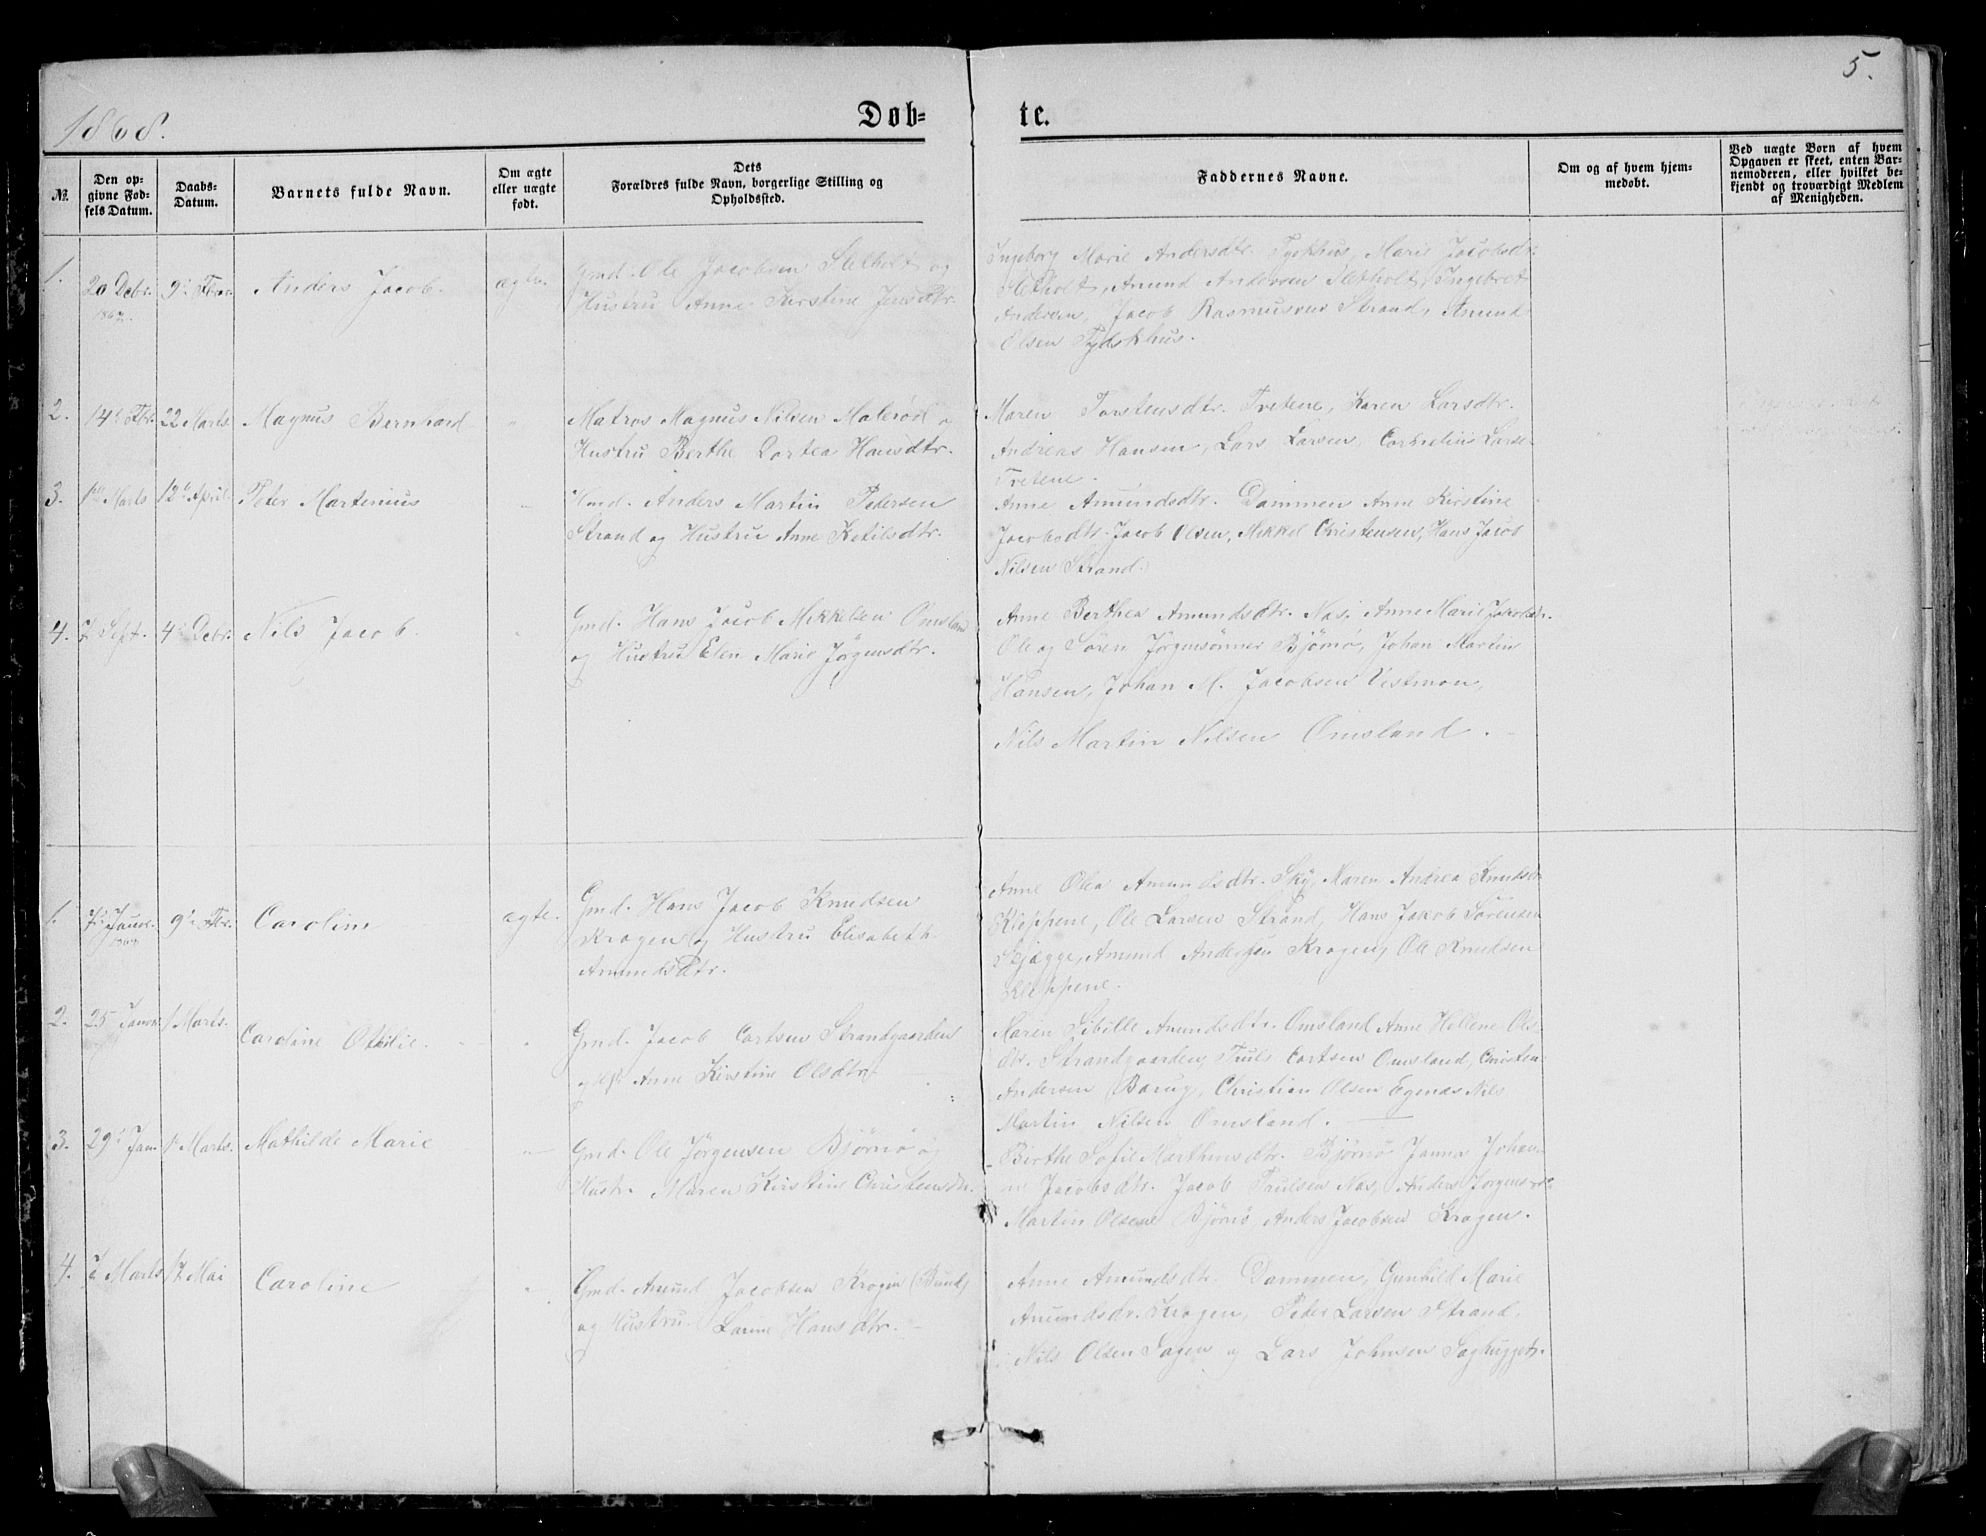 5.
1868.
Døb=
te.
№.
Den op=
givne Fød=
sels Datum.
Daabs=
Datum.
Barnets fulde Navn.
Om ægte
eller uægte
født.
Dets
Forældres fulde Navn, borgerlige Stilling og
Opholdssted.
Faddernes Navne.
Om og af hvem hjem=
medøbt.
Ved uægte Børn af hvem
Opgaven er skeet, enten Bar=
nemoderen, eller hvilket be=
kjendt og troværdigt Medlem
af Menigheden.
1.
20 Debr.
1867.
9de Fbr.
Anders Jacob.
ægte.
Gmd. Ole Jacobsen og
Hustru Anne Kirstine Jensdtr.
Ingeborg Marie Andersdtr. Marie Jacobsdtr
Amund Andersen Ingebret
Andersen, Jacob Rasmussen Strand, Amund
Olsen Tydskhus.
2.
14de Fbr.
22 Marts
Magnus Bernhard
"
Matros Magnus Nilsen Malerød o
Hustru Berthe Dortea Hansdtr.
Maren Torstensdtr. Tvetene, Karen Larsdtr.
Andreas Hansen, Lars Larsen, Cornelius Larsen
Tvetene.
3.
1ste Marts
12te April.
Peter Martinius
"
Hmd. Anders Martin Pedersen
Strand og Hustru Anne Ketilsdtr.
Anne Amundsdtr. Dammen Anne Kirstine
Jacobsdtr. Jacob Olsen, Mikkel Christensen, Hans Jacob
Nilsen Strand.
4.
7 Sept.
4de Debr.
Nils Jacob.
"
Gmd. Hans Jacob Mikkelsen Omsland
og Hustru Elen Marie Jørgensdtr.
Anne Berthea Amundsdtr. Nas, Anne Marie Jakobsdtr.
Ole og Sören Jörgensönner Bjørnø, Johan Martin
Hansen, Johan M. Jacobsen Vestmon,
Nils Martin Nilsen Omsland.
1.
7de Januar
9de Fbr.
Caroline
ægte.
Gmd. Hans Jacob Knudsen
Krogen og Hustru Elisabeth
Amundsdtr.
Anne Olea Amundsdtr. Sky, Maren Andrea Knudsdtr
Kleppene, Ole Larsen Strand, Hans Jakob Sørensen
Skjægge, Amund Andersen Krogen, Ole Knudsen
Kleppene.
2.
25 Januar
1 Marts.
Caroline Othilie.
"
Gmd. Jacob Cortsen Strandgaarden
og Hst. Anne Kirstine Olsdtr.
Maren Sibille Amundsdtr. Omsland Anne Hellene Ols=
dtr. Strandgaarden, Truls Cortsen Omsland, Christen
Andersen Barug, Christian Olsen Egenæs Nils
Martin Nilsen Omsland.
3.
29de Jan.
1ste Marts.
Mathilde Marie
"
Gmd. Ole Jørgensen Bjørnø og
Hustr. Maren Kirstine Christensdtr.
Birthe Sofie Marthinsdtr. Bjørnø Janna Johan=
ne Jacobsdtr. Jacob Trulsen Nas, Anders Jørgensen
Martin Olsen Bjørnø Anders Jacobsen Krogen.
4.
7 Marts
17 Mai
Caroline
"
Gmd. Amund Jacobsen Krogen (Bund)
og Hustru Larine Hansdtr.
Anne Amundsdtr. Dammen, Gunhild Marie
Amundsdtr. Krogen, Peder Larsen Strand.
Nils Olsen Sagen og Lars Johnsen Saghugget.